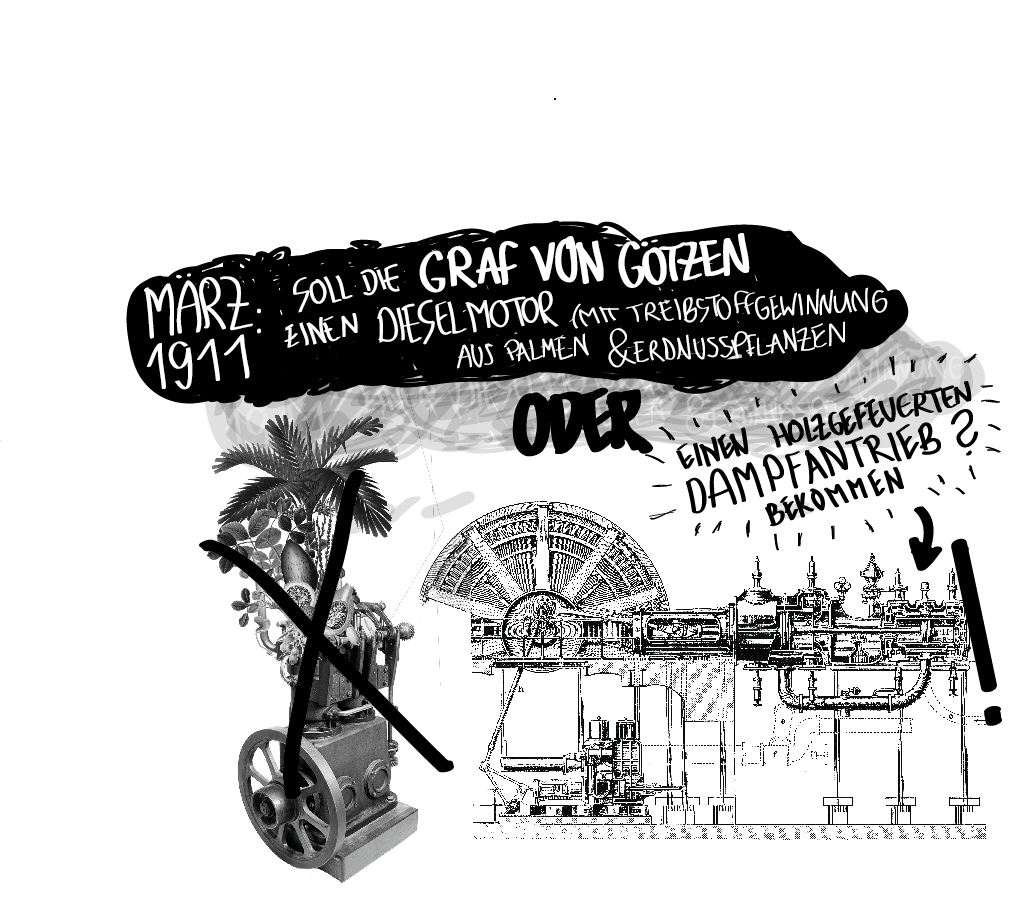 MÄRZ: SOLL DIE GRAF VON GÖTZEN
1911 EINEN DIESELMOTOR (MIT TREIBSTOFFGEWINNUNG
AUS PALMEN & ERDNUSSPFLANZEN
ODER
EINEN HOLZGEFEUERTEN
DAMPFANTRIEB?
BEKOMMEN
h